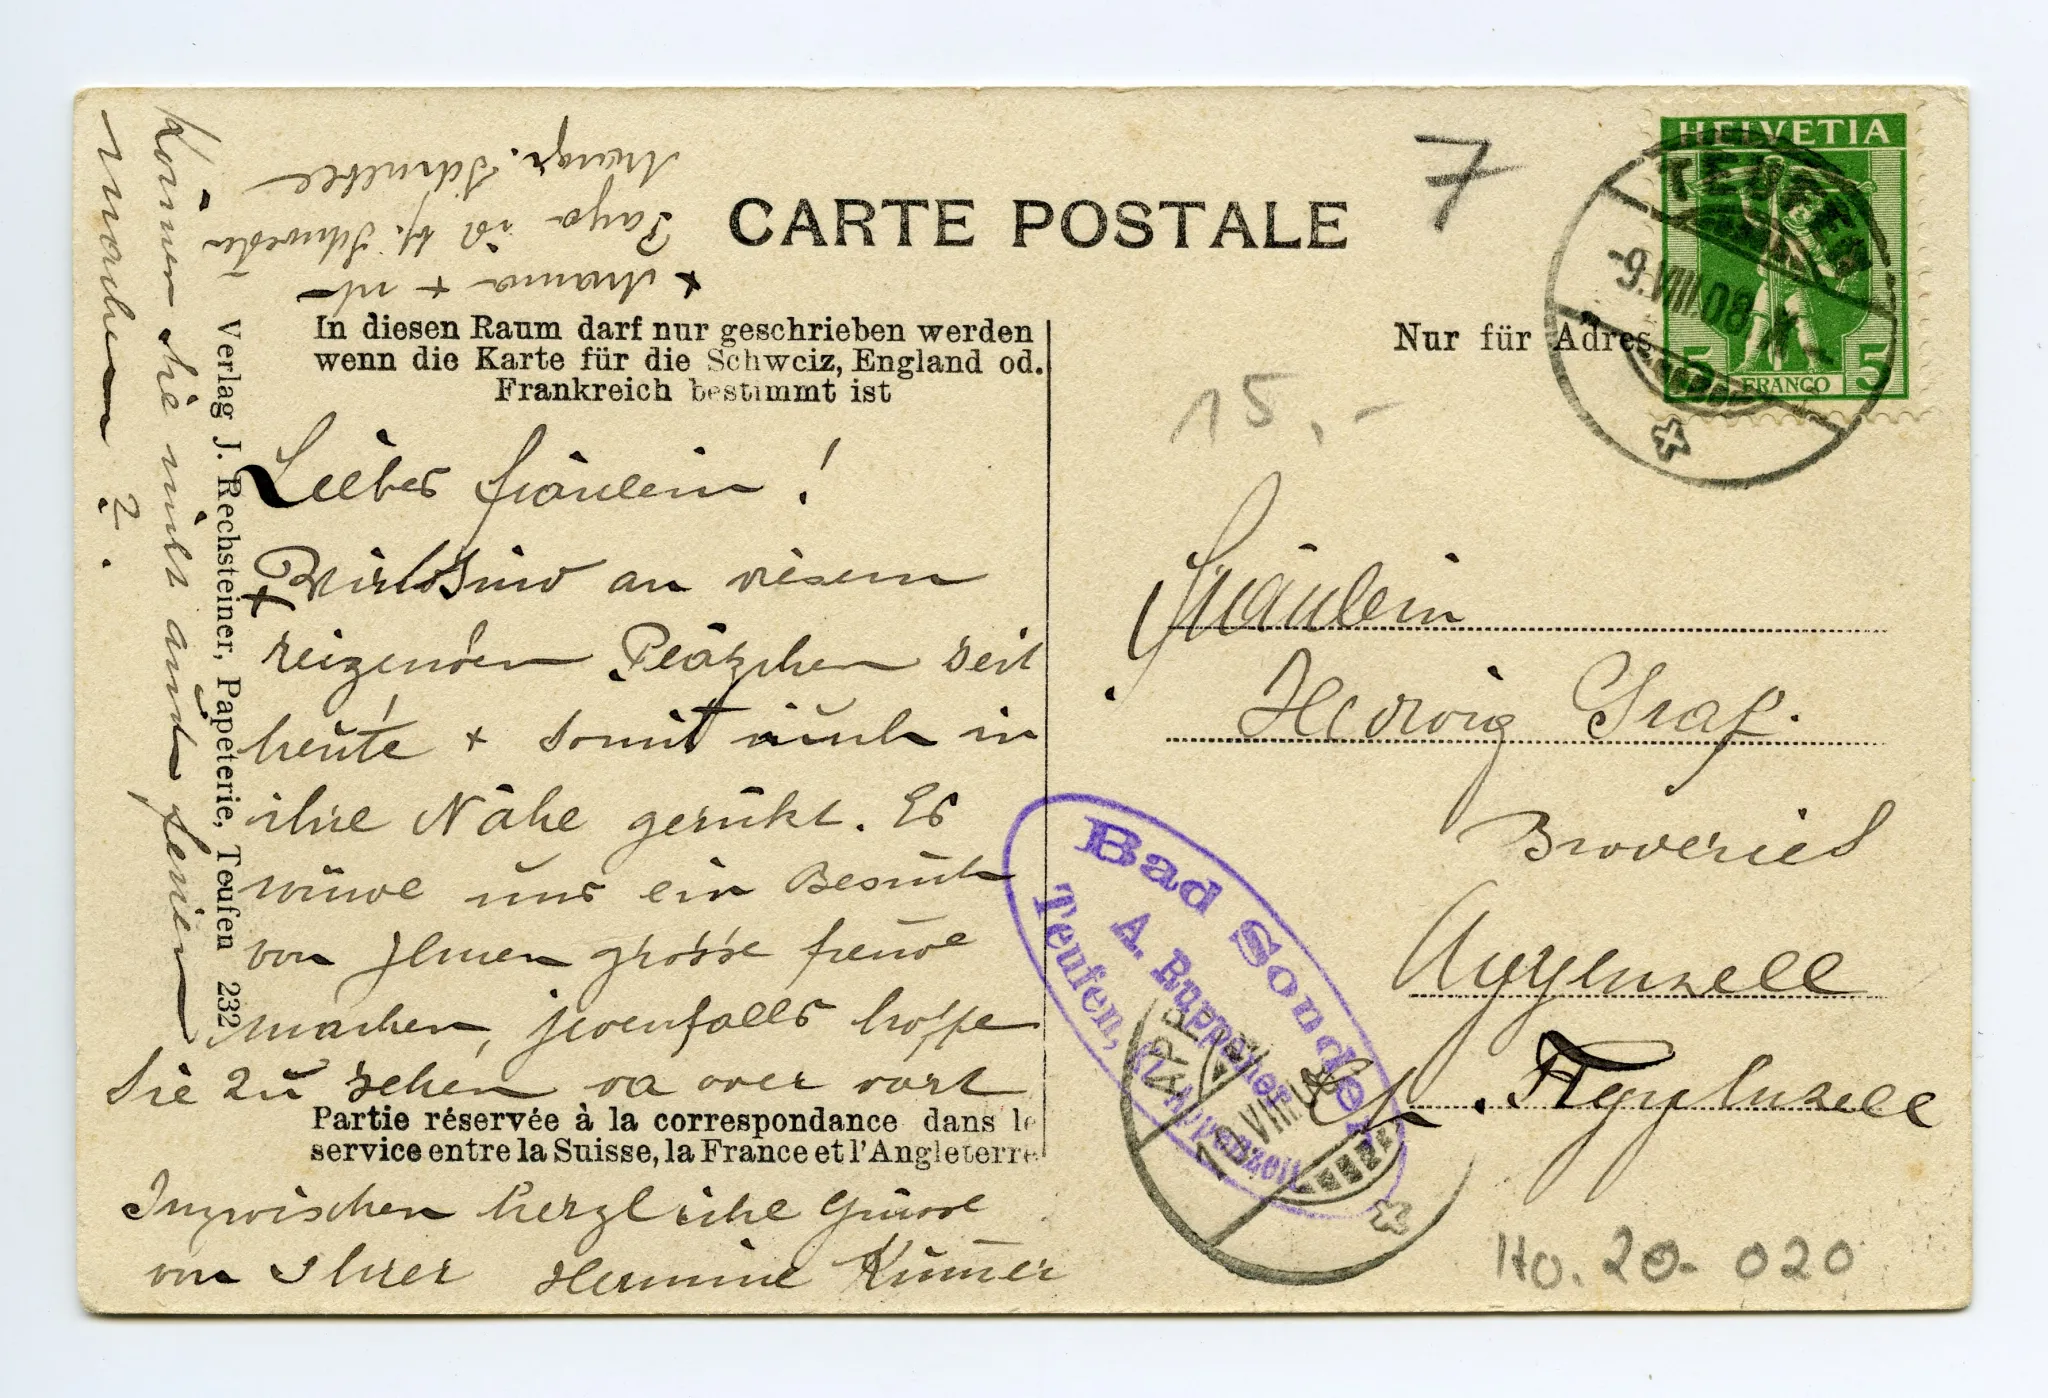 CARTE POSTALE
7
HELVETIA
5 FRANCO 5
TEUFEN
-9.VIII.08-X
In diesen Raum darf nur geschrieben werden
wenn die Karte für die Schweiz, England od.
Frankreich bestimmt ist
Nur für Adres
15,-
Liebes Fräulein!
Wir sind an diesem
reizenden Pläzchen seit
heute + somit auch in
ihre Nähe gerükt. Es
würde uns ein Besuch
von Ihnen grosse freude
machen, jedenfalls hoffe
Sie zu sehen da oder dort
Partie réservée à la correspondance dans le
service entre la Suisse, la France et l'Angleterre
Inzwischen herzliche Grüsse
von Ihrer Hermine Kürner
Können Sie nicht auch ferien
machen?
+ Mama + ich
Papa ist bf. Schwester
Verlag J. Rechsteiner, Papeterie, Teufen 232
Fräulein
Hedwig Graf.
Broderies
Appenzell
Ct. Appenzell
Bad Sonder
A. Ruppaner
Teufen,
APPENZELL
10.VIII.08
Ho. 20-020